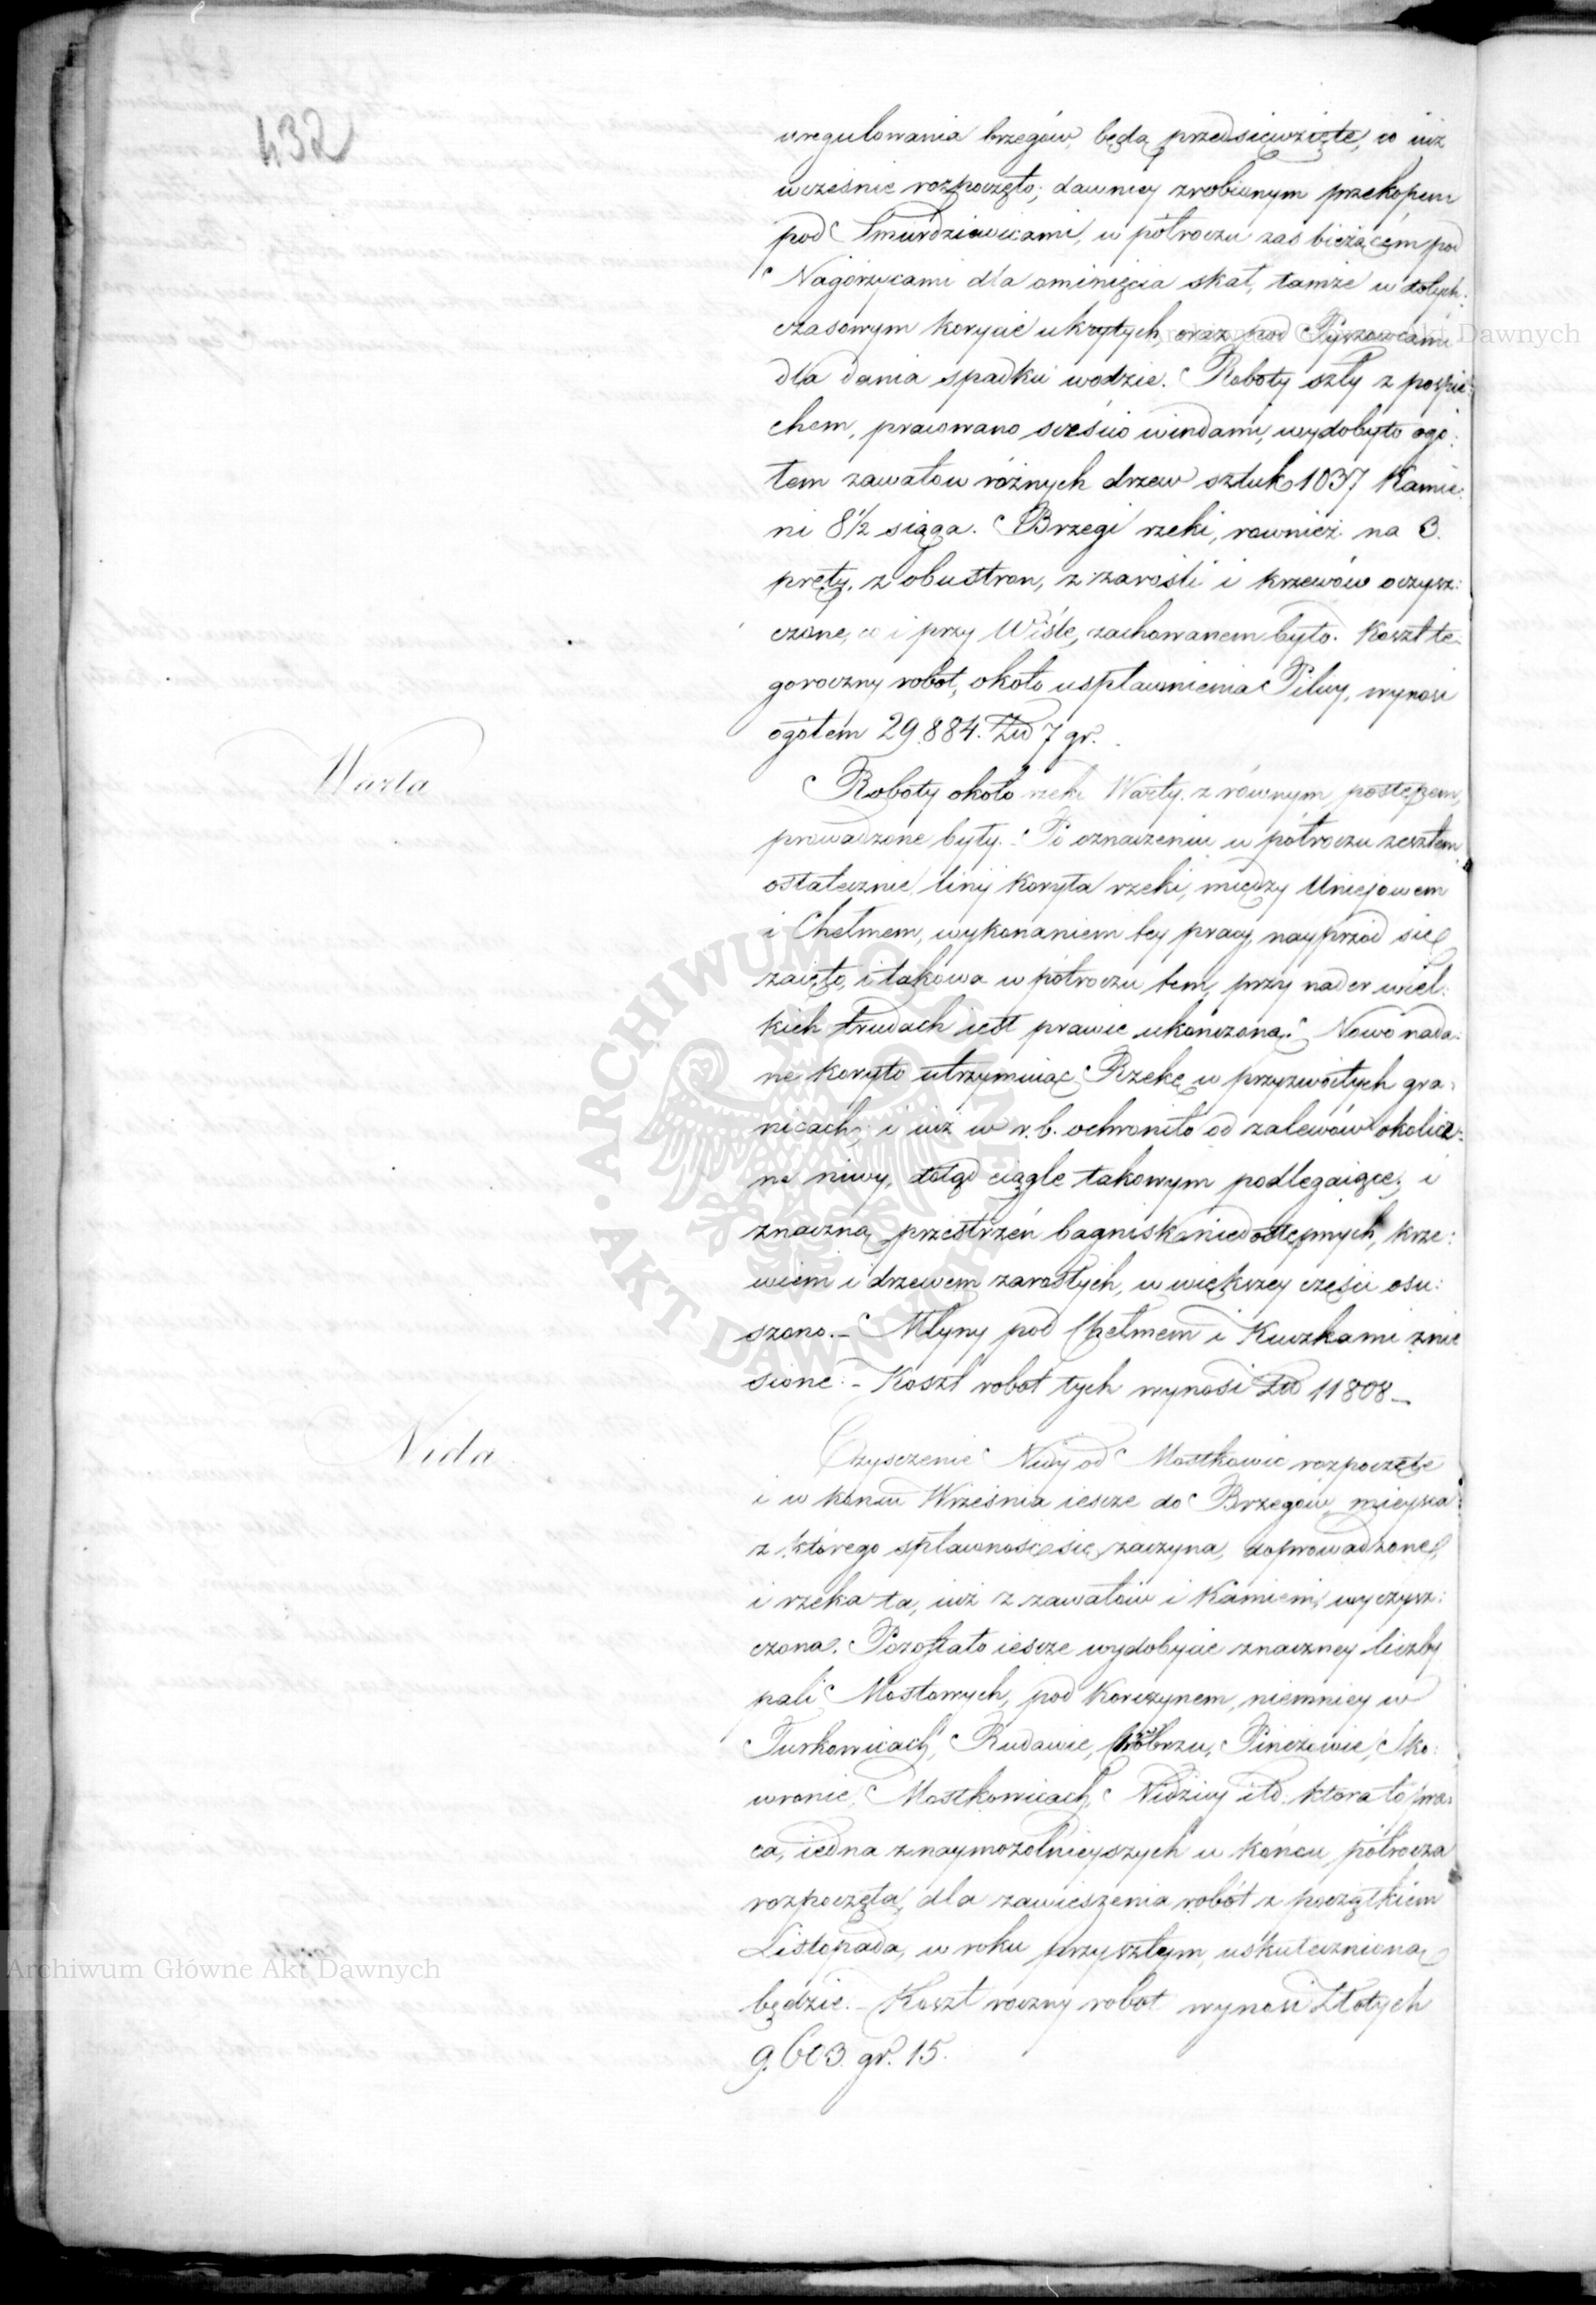 432
uregulowania brzegów, będą przedsięwzięte, co iuż
wcześnie rozpoczęto; dawniey zrobionym przekopem
pod Smurdziewicami, w półroczu zaś bieżącém pod
Nagórzycami dla ominięcia skał, tamże w dotych:
czasowym korycie ukrytych, oraz pod Pyszowcami
dla dania spadku wodzie. Roboty szły z pospie:
chem, pracowano sześcio windami, wydobyto ogó:
łem zawałow różnych drzew sztuk 1037 Kamie:
ni 8½ siąga. Brzegi rzeki, rownież na 3.
pręty, z obustron, z zarośli i krzewów oczysz:
czone, co i przy Wiśle, zachowanem było. Koszt te:
goroczny robot, około uspławnienia Pilicy, wynosi
ogółem 29,884. Złp 7 gr.
Warta
Roboty około rzeki Warty, z równym postępem,
prowadzone były. Po oznaczeniu w półroczu zeszłem
ostatecznie, linij koryta rzeki, między Uniejowem
i Chełmem, wykonaniem tey pracy, nayprzód się
zaięto, i takowa w półroczu tem, przy nader wiel:
kich trudach iest prawie ukończoną. Nowo nada:
ne koryto utrzymuiąc Rzekę w przyzwoitych gra:
nicach, i iuż w r. b. ochroniło od zalewów okolicz:
ne niwy, dotąd ciągle takowym podlegaiące, i
znaczną przestrzeń bagnisk niedostępnych, krze:
wiem i drzewem zarosłych, w większey części osu:
szono. – Młyny pod Chełmem i Kuczkami znie
sione. – Koszt robot tych wynosi Złp 11808 –
Nida
Czysczenie Nidy od Mostkowic rozpoczęte
i w końcu Września iescze do Brzegów, mieysca
z którego spławność się zaczyna, doprowadzone,
i rzeka ta, iuż z zawałów i Kamieni, wyczysz:
czona. Pozostało iescze wydobycie znaczney liczby
pali Mostowych, pod Korczynem, niemniey w
Jurkowicach, Rudawie, Chrobrzu, Pinczowie, Sko:
wronie, Mostkowicach, Nidzicy itd. która to pra:
ca, iedna z naymozolnieyszych w końcu półrocza
rozpoczęta, dla zawieszenia robót z początkiem
Listopada, w roku przyszłym, uskutecznioną
będzie. – Koszt roczny robot wynosi Złotych
9,603. gr. 15.
Archiwum Główne Akt Dawnych
Archiwum Główne Akt Dawnych
ARCHIWUM GŁÓWNE
AKT DAWNYCH